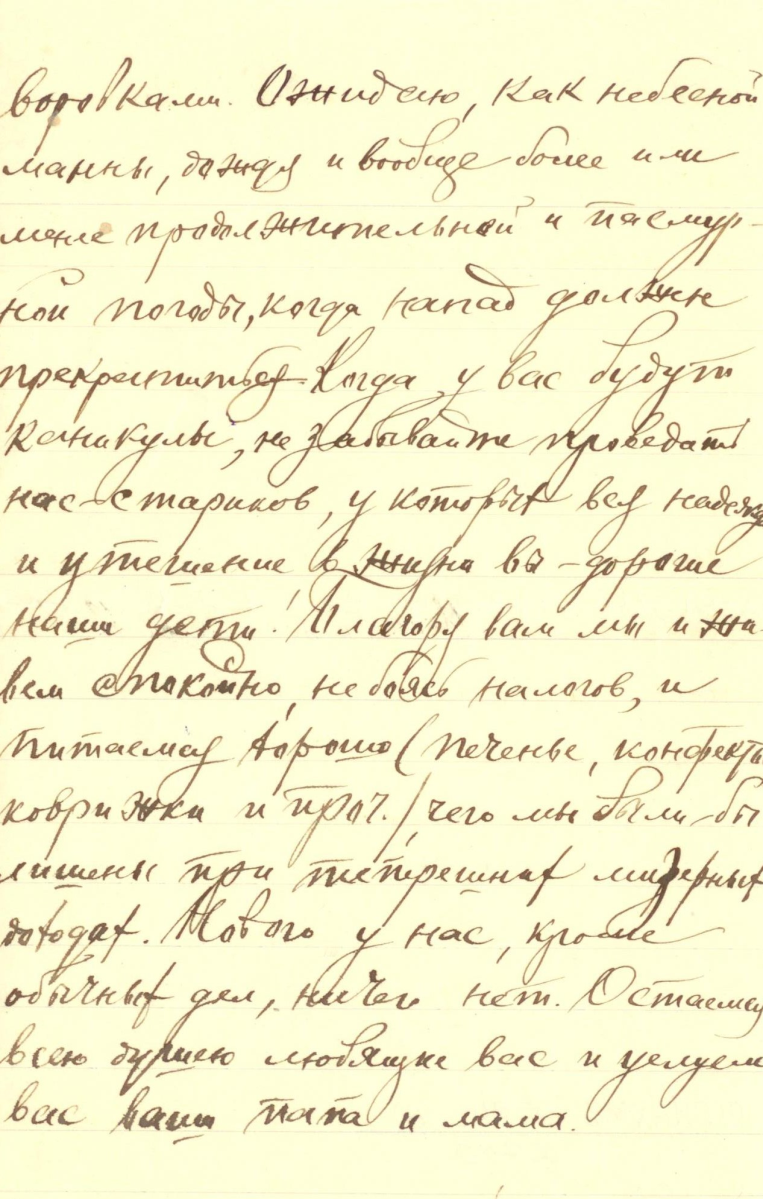 воровками. Ожидаю, как небесной
манны, дождя и вообще более или
менее продолжительной и пасмур-
ной погоды, когда напад должен
прекратиться. Когда у вас будут
каникулы, не забывайте проведать
нас-стариков, у которых вся надежда
и утешение в жизни вы - дорогие
наши дети! Благодаря вам мы и жи-
вем спокойно, не боясь налогов, и
питаемся хорошо (печенье, конфекты
коврижки и проч.), чего мы были-бы
лишены при теперешних мизерных
доходах. Нового у нас, кроме
обычных дел, ничего нет. Остаемся
всею душею любящие вас и целуем
вас ваши папа и мама.